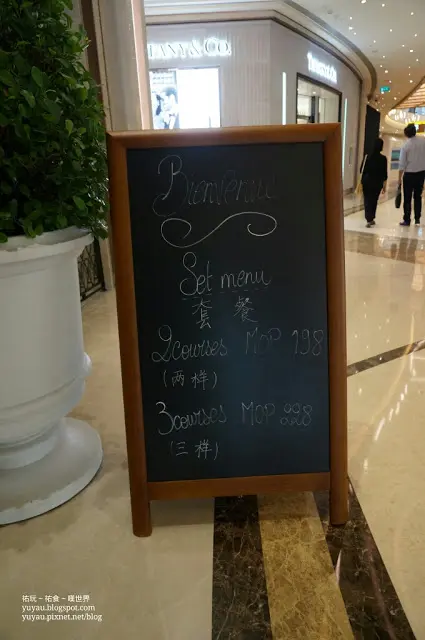 TIFFANY & CO.
Bienvenue
Set menu
套餐
2 courses MOP 198
(两样)
3 courses MOP 228
(三样)
祐玩~祐食~嘆世界
yuyau.blogspot.com
yuyau.pixnet.net/blog